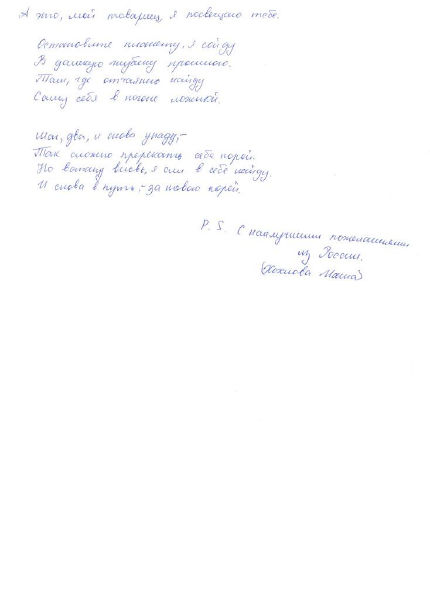 А это, мой товарищ, я посвещаю тебе.
Остановите планету, я сойду
В далекую глубину прошлого.
Там, где отчаянно найду
Саму себя в погоне ложной.
Шаг, два, и снова упаду,-
Так сложно пререкать себе порой.
Но встану вновь, я сил в себе найду
И снова в путь,- за новою порой.
P. S. С наилучшими пожеланиями
из России.
(Хохлова Маша)